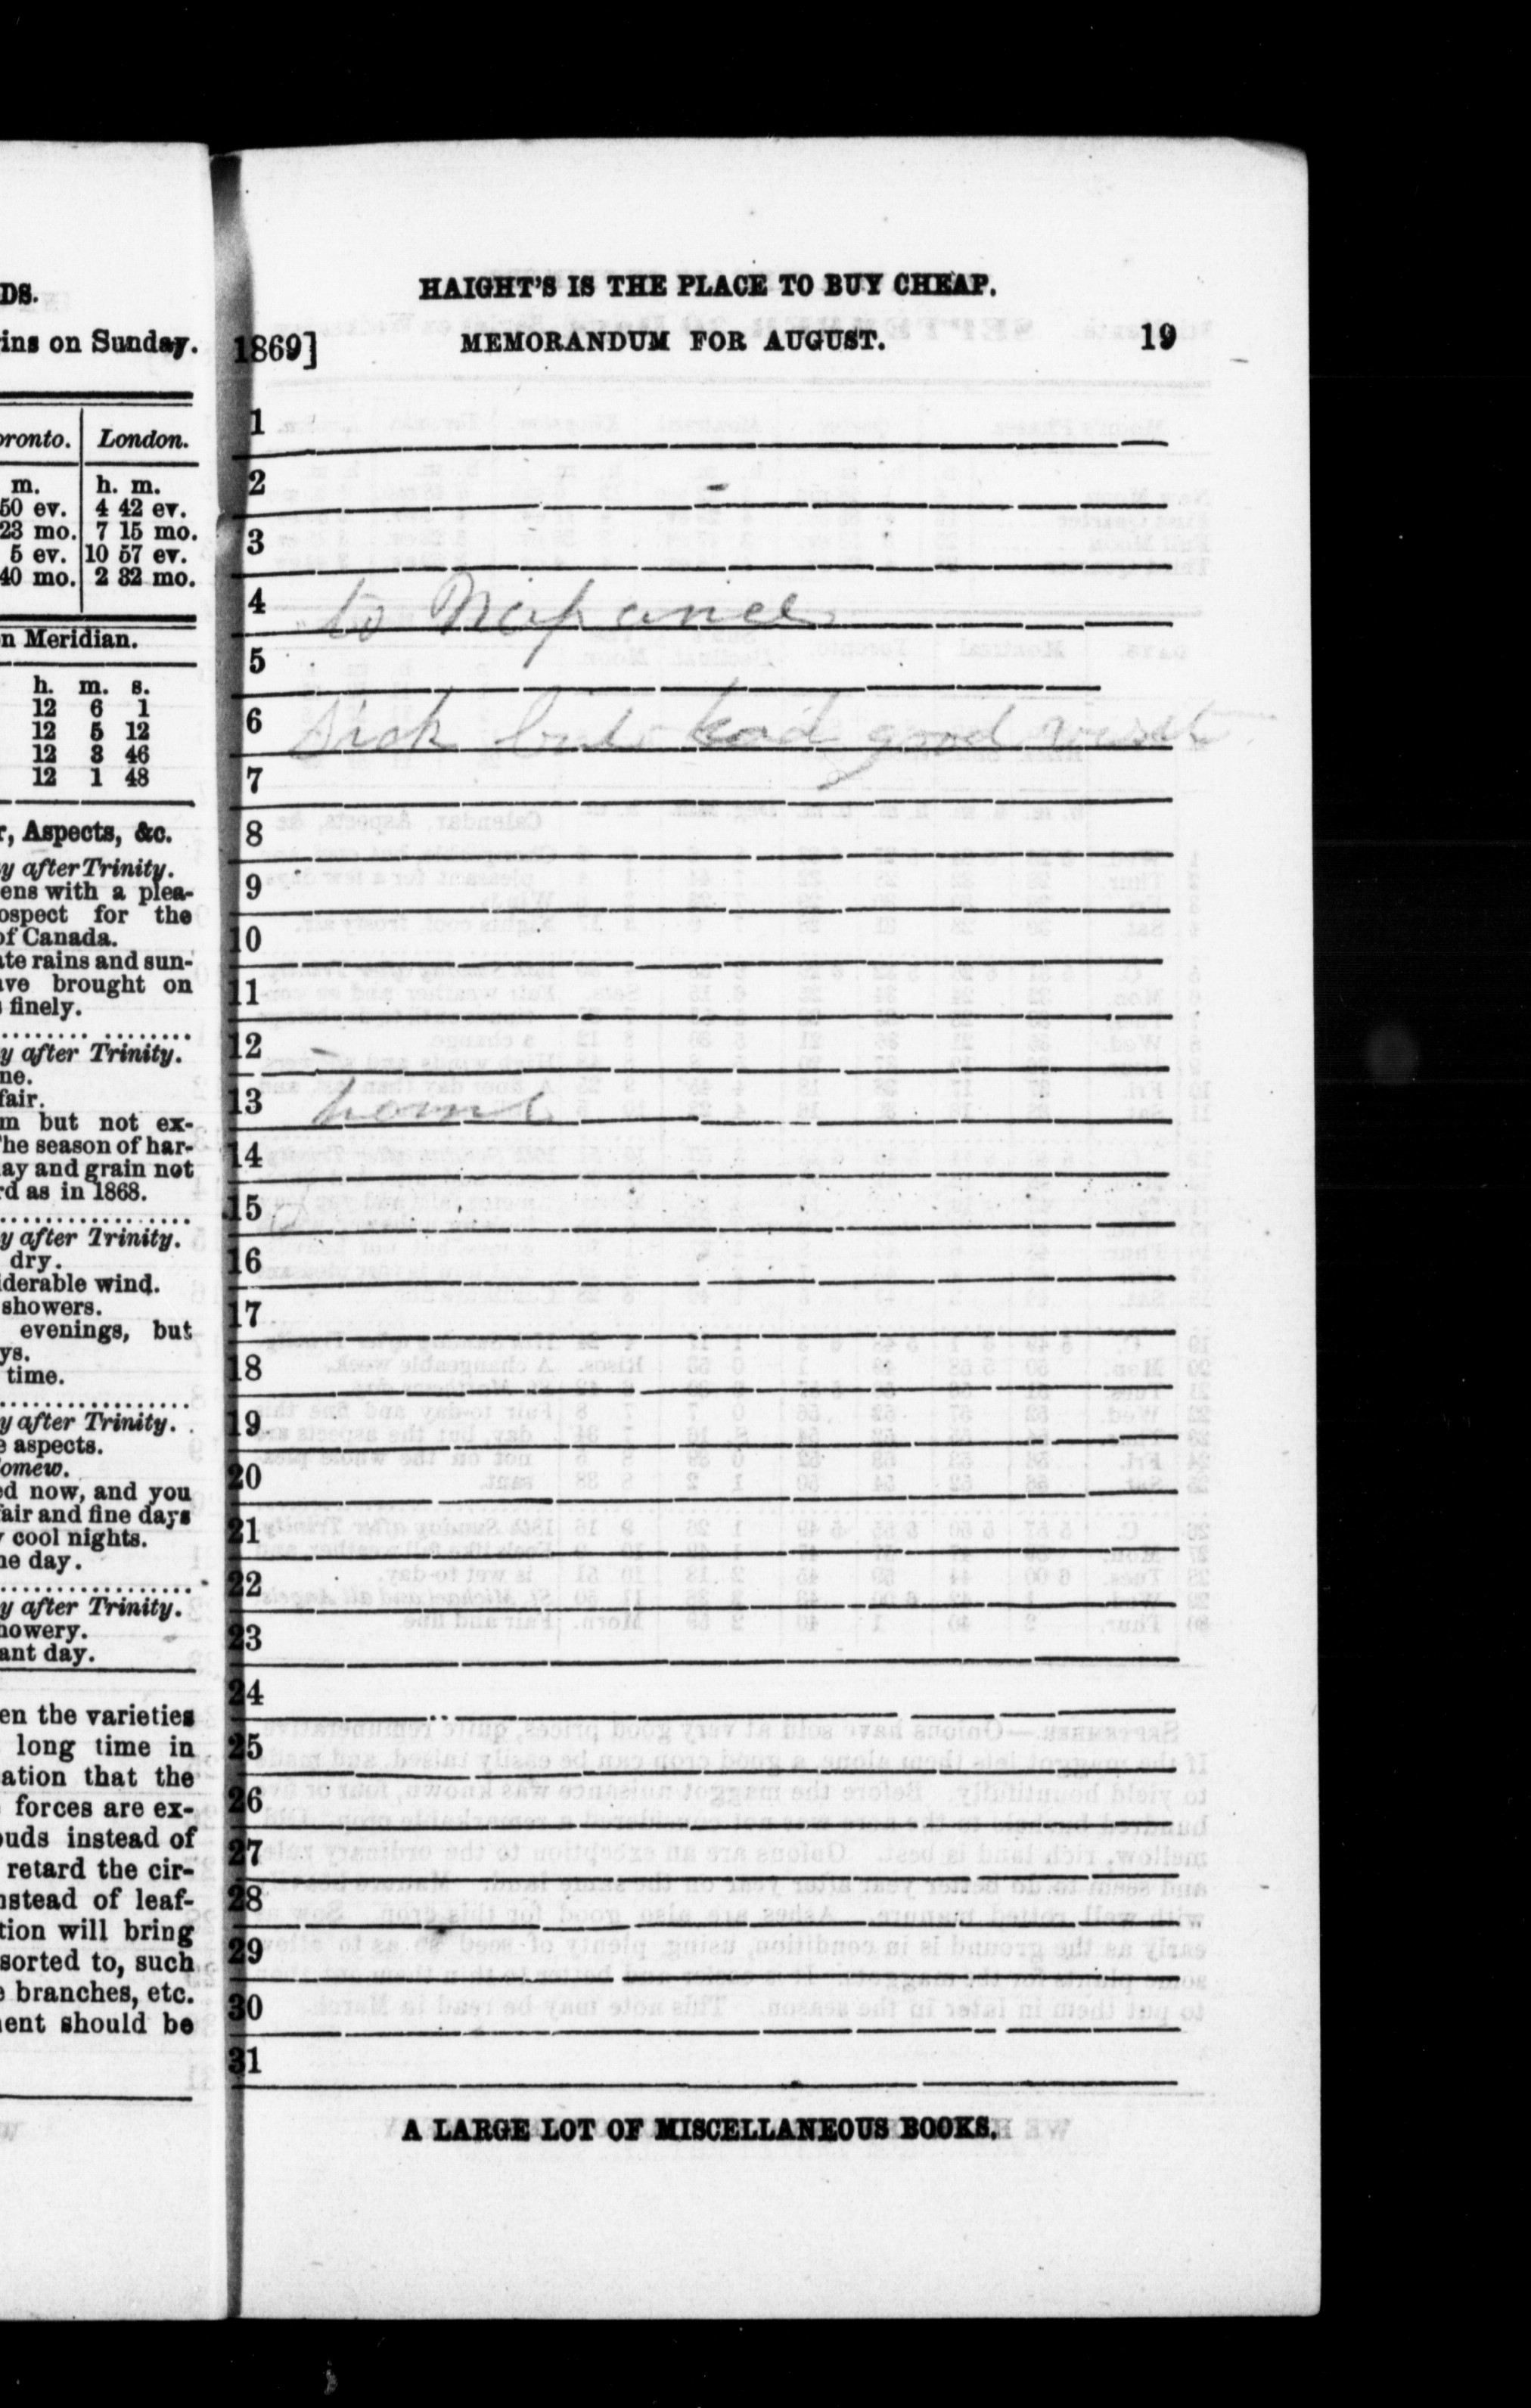 DS.
ins on Sunday.
oronto. London.
m. h. m.
50 ev. 4 42 ev.
23 mo. 7 15 mo.
5 ev. 10 57 ev.
40 mo. 2 32 mo.
n Meridian.
h. m. s.
12 6 1
12 5 12
12 3 46
12 1 48
r, Aspects, &c.
y after Trinity.
ens with a plea-
ospect for the
of Canada.
ate rains and sun-
ave brought on
s finely.
y after Trinity.
ne.
fair.
m but not ex-
The season of har-
ay and grain not
rd as in 1868.
y after Trinity.
dry.
iderable wind.
showers.
evenings, but
ys.
time.
y after Trinity.
e aspects.
omew.
ed now, and you
fair and fine days
y cool nights.
ne day.
y after Trinity.
howery.
ant day.
en the varieties
long time in
ation that the
forces are ex-
ouds instead of
retard the cir-
nstead of leaf-
tion will bring
sorted to, such
e branches, etc.
ment should be
HAIGHT'S IS THE PLACE TO BUY CHEAP.
1869] MEMORANDUM FOR AUGUST. 19
1
2
3
4 to Napanee
5
6 Sick but had good visit
7
8
9
10
11
12
13 home
14
15
16
17
18
19
20
21
22
23
24
25
26
27
28
29
30
31
A LARGE LOT OF MISCELLANEOUS BOOKS.